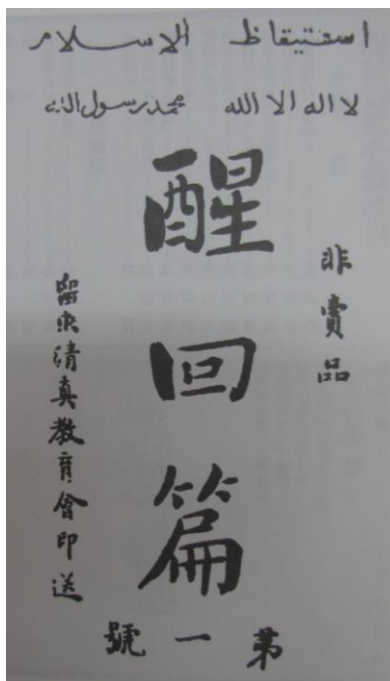 استيقاظ الاسلام
لا اله الا الله محمد رسول الله
非賣品
醒回篇
留東清真教育會印送
第一號